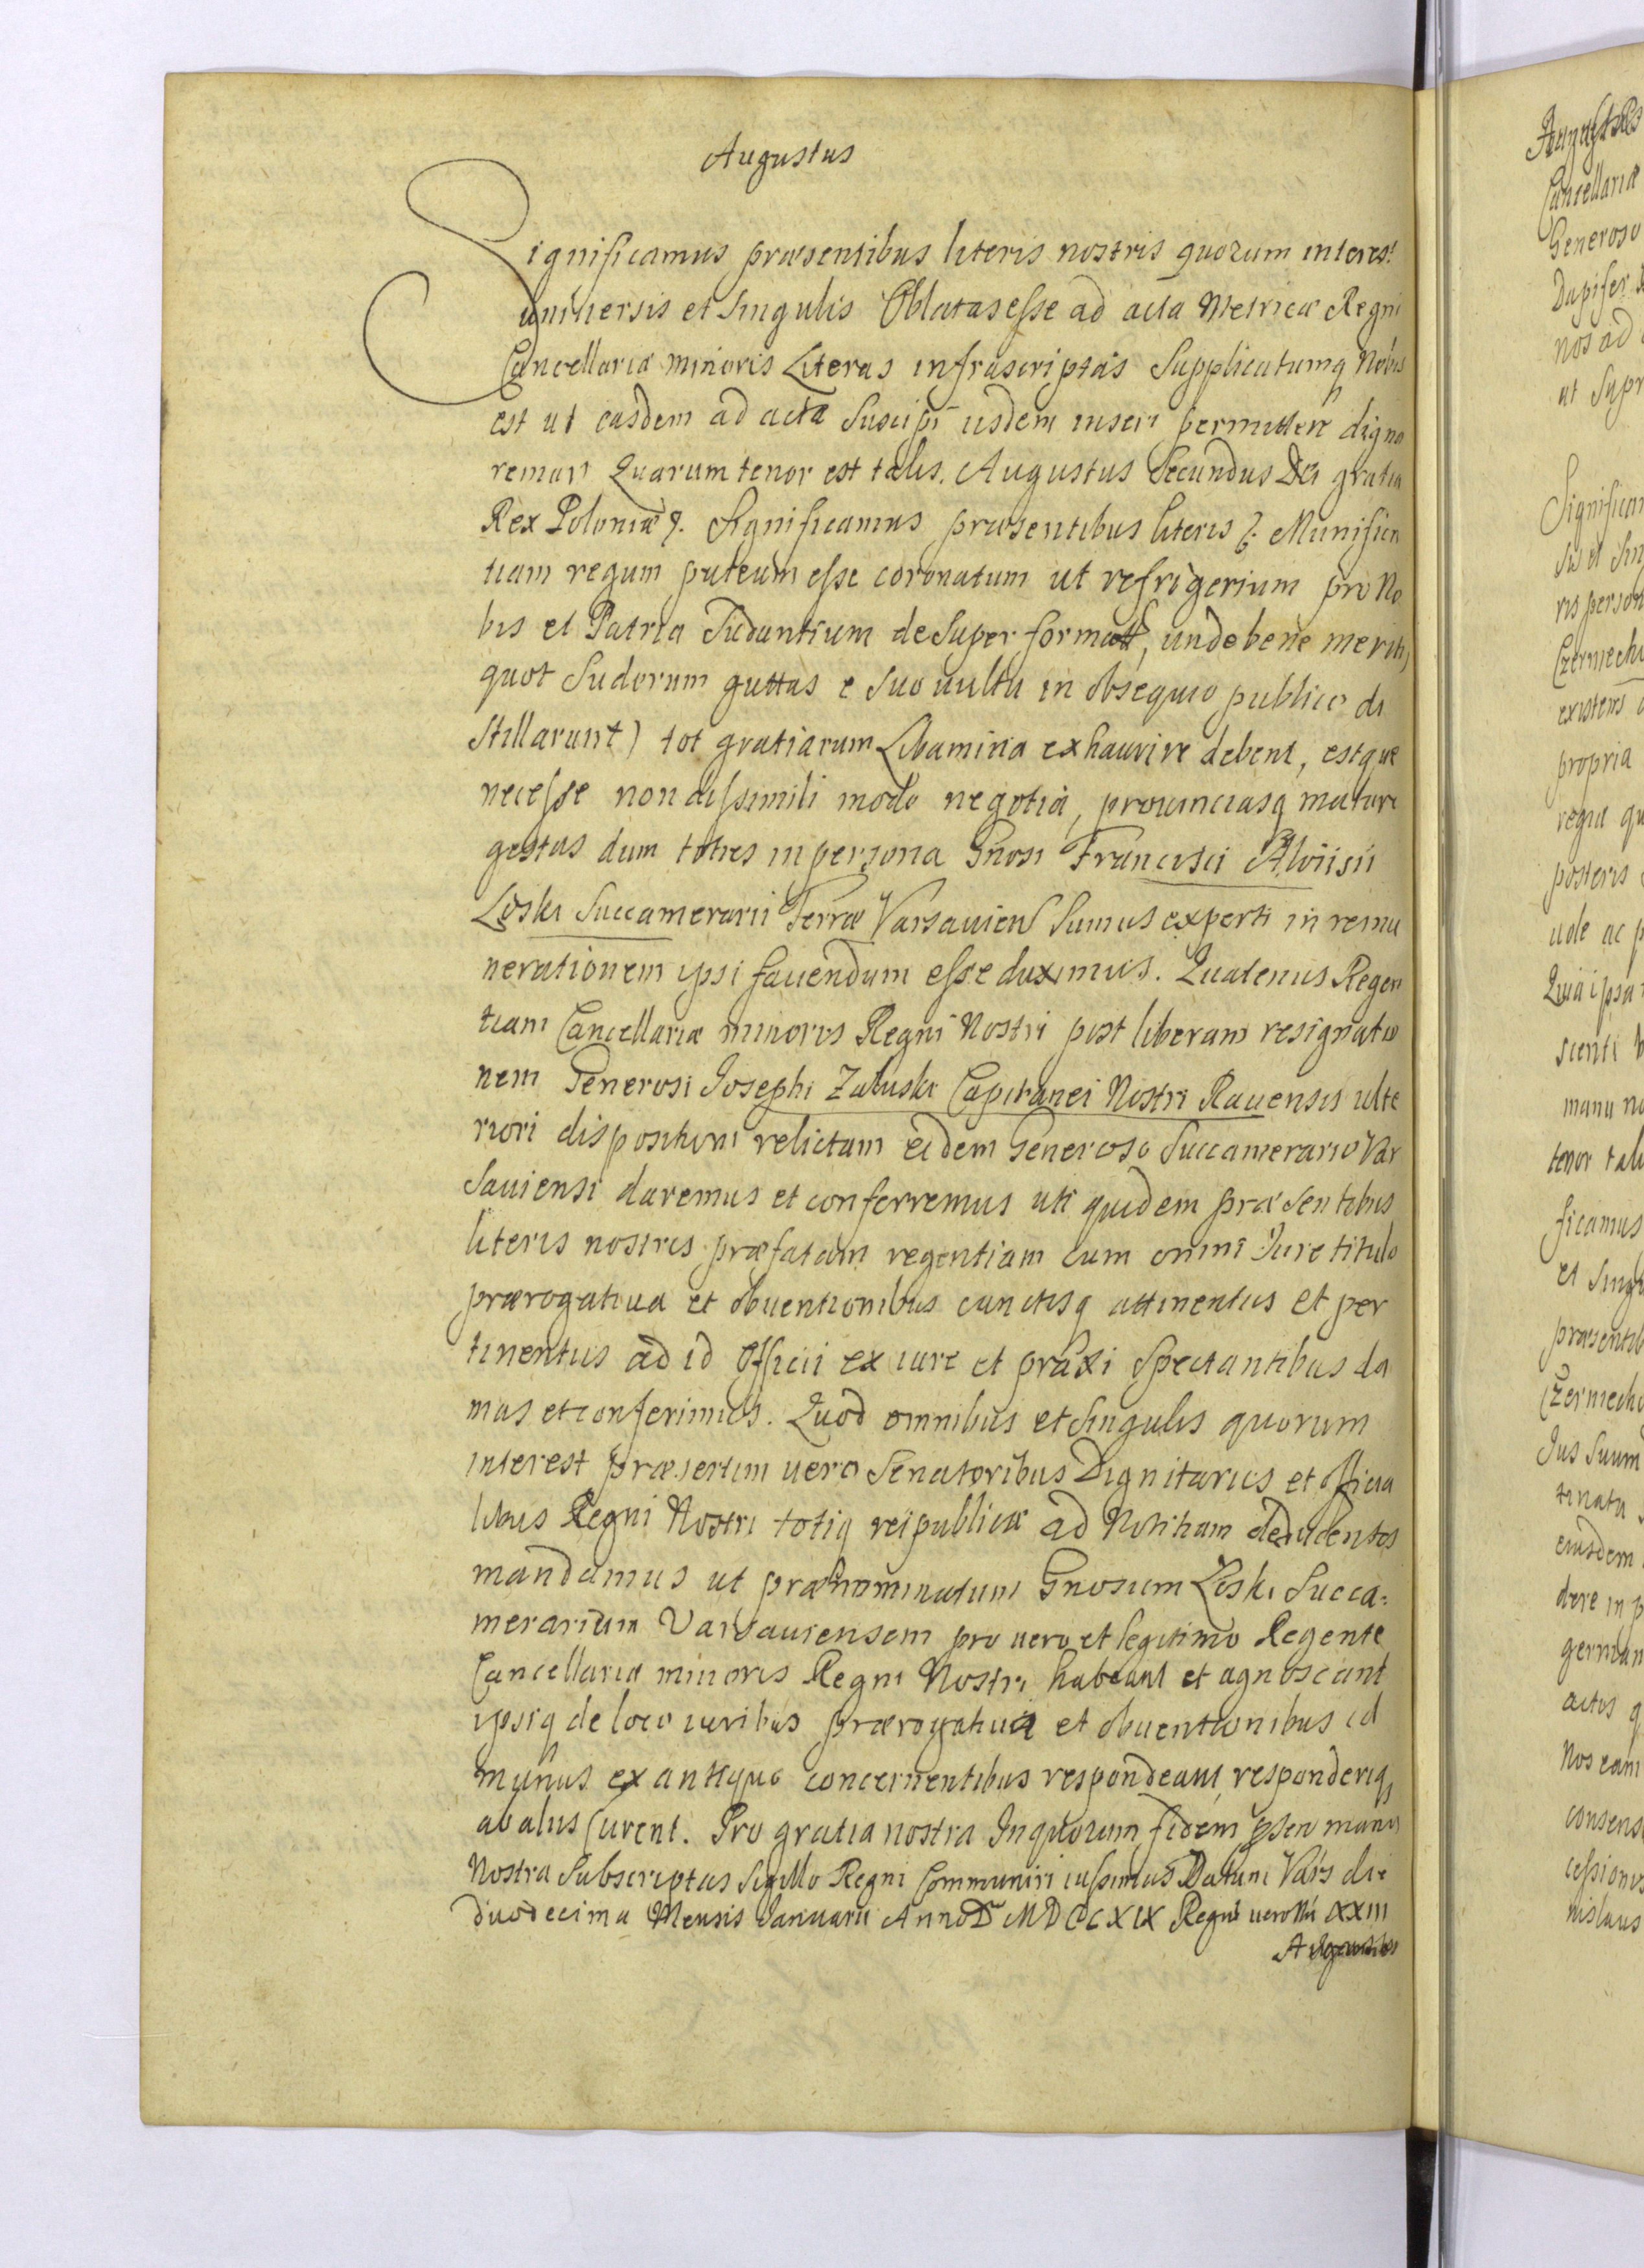 Augustus
Significamus præsentibus literis nostris quorum interest
universis et singulis Oblatas esse ad acta Metricæ Regni
Cancellariæ minoris Literas infrascriptas Supplicatumq Nobis
est ut easdem ad acta Suscipi iisdem inseri permittere digna
remur Quarum tenor est talis. Augustus Secundus Dei gratia
Rex Poloniæ &. Significamus præsentibus literis &. Munificen
tiam regum puteum esse coronatum ut refrigerium pro No
bis et Patria Sudantium desuper formatt, unde bene meriti
quot Sudorum guttas e suo uultu in obsequio publico di
stillarunt) tot gratiarum Libamina exhaurire debent, estque
necesse non dissimili modo negotia, prouinciasq mature
gestas dum toties in persona Gnosi Francisci Aloiisii
Loski Succamerarii Terræ Varsavien Sumus experti in remu
nerationem ipsi fauendum esse duximus. Quatenus Regen
tiam Cancellariæ minoris Regni Nostri post liberam resignatio
nem Generosi Josephi Zaluski Capitanei Nostri Rauensis ulte
riori dispositioni relictam eidem Generoso Succamerario Var
saviensi daremus et conferremus uti quidem præsentibus
literis nostris præfatam regentiam cum omni Jure titulo
prærogatiua et obuentionibus cunctisq attinentiis et per
tinentiis ad id Officii ex iure et praxi Spectantibus da
mus et conferimus. Quod omnibus et Singulis quorum
interest præsertim uero Senatoribus Dignitariis et Officia
libus Regni Nostri totiq reipublicæ ad Notitiam deducentes
mandamus ut prænominatum Gnosum Loski Succa=
merarium Varsauiensem pro uero et legitimo Regente
Cancellariæ minoris Regni Nostri habeant et agnoscant
ipsiq de loco iuribus prærogatiua et obuentionibus id
munus ex antiquo concernentibus respondeant responderiq
ab aliis Curent. Pro gratia nostra In quorum fidem psen manu
Nostra Subscriptas Sigillo Regni Communiri iussimus Datum Vars die
duodecima Mensis Januarii Anno D MDCCXIX Regni uero Nri XXIII
Augustus